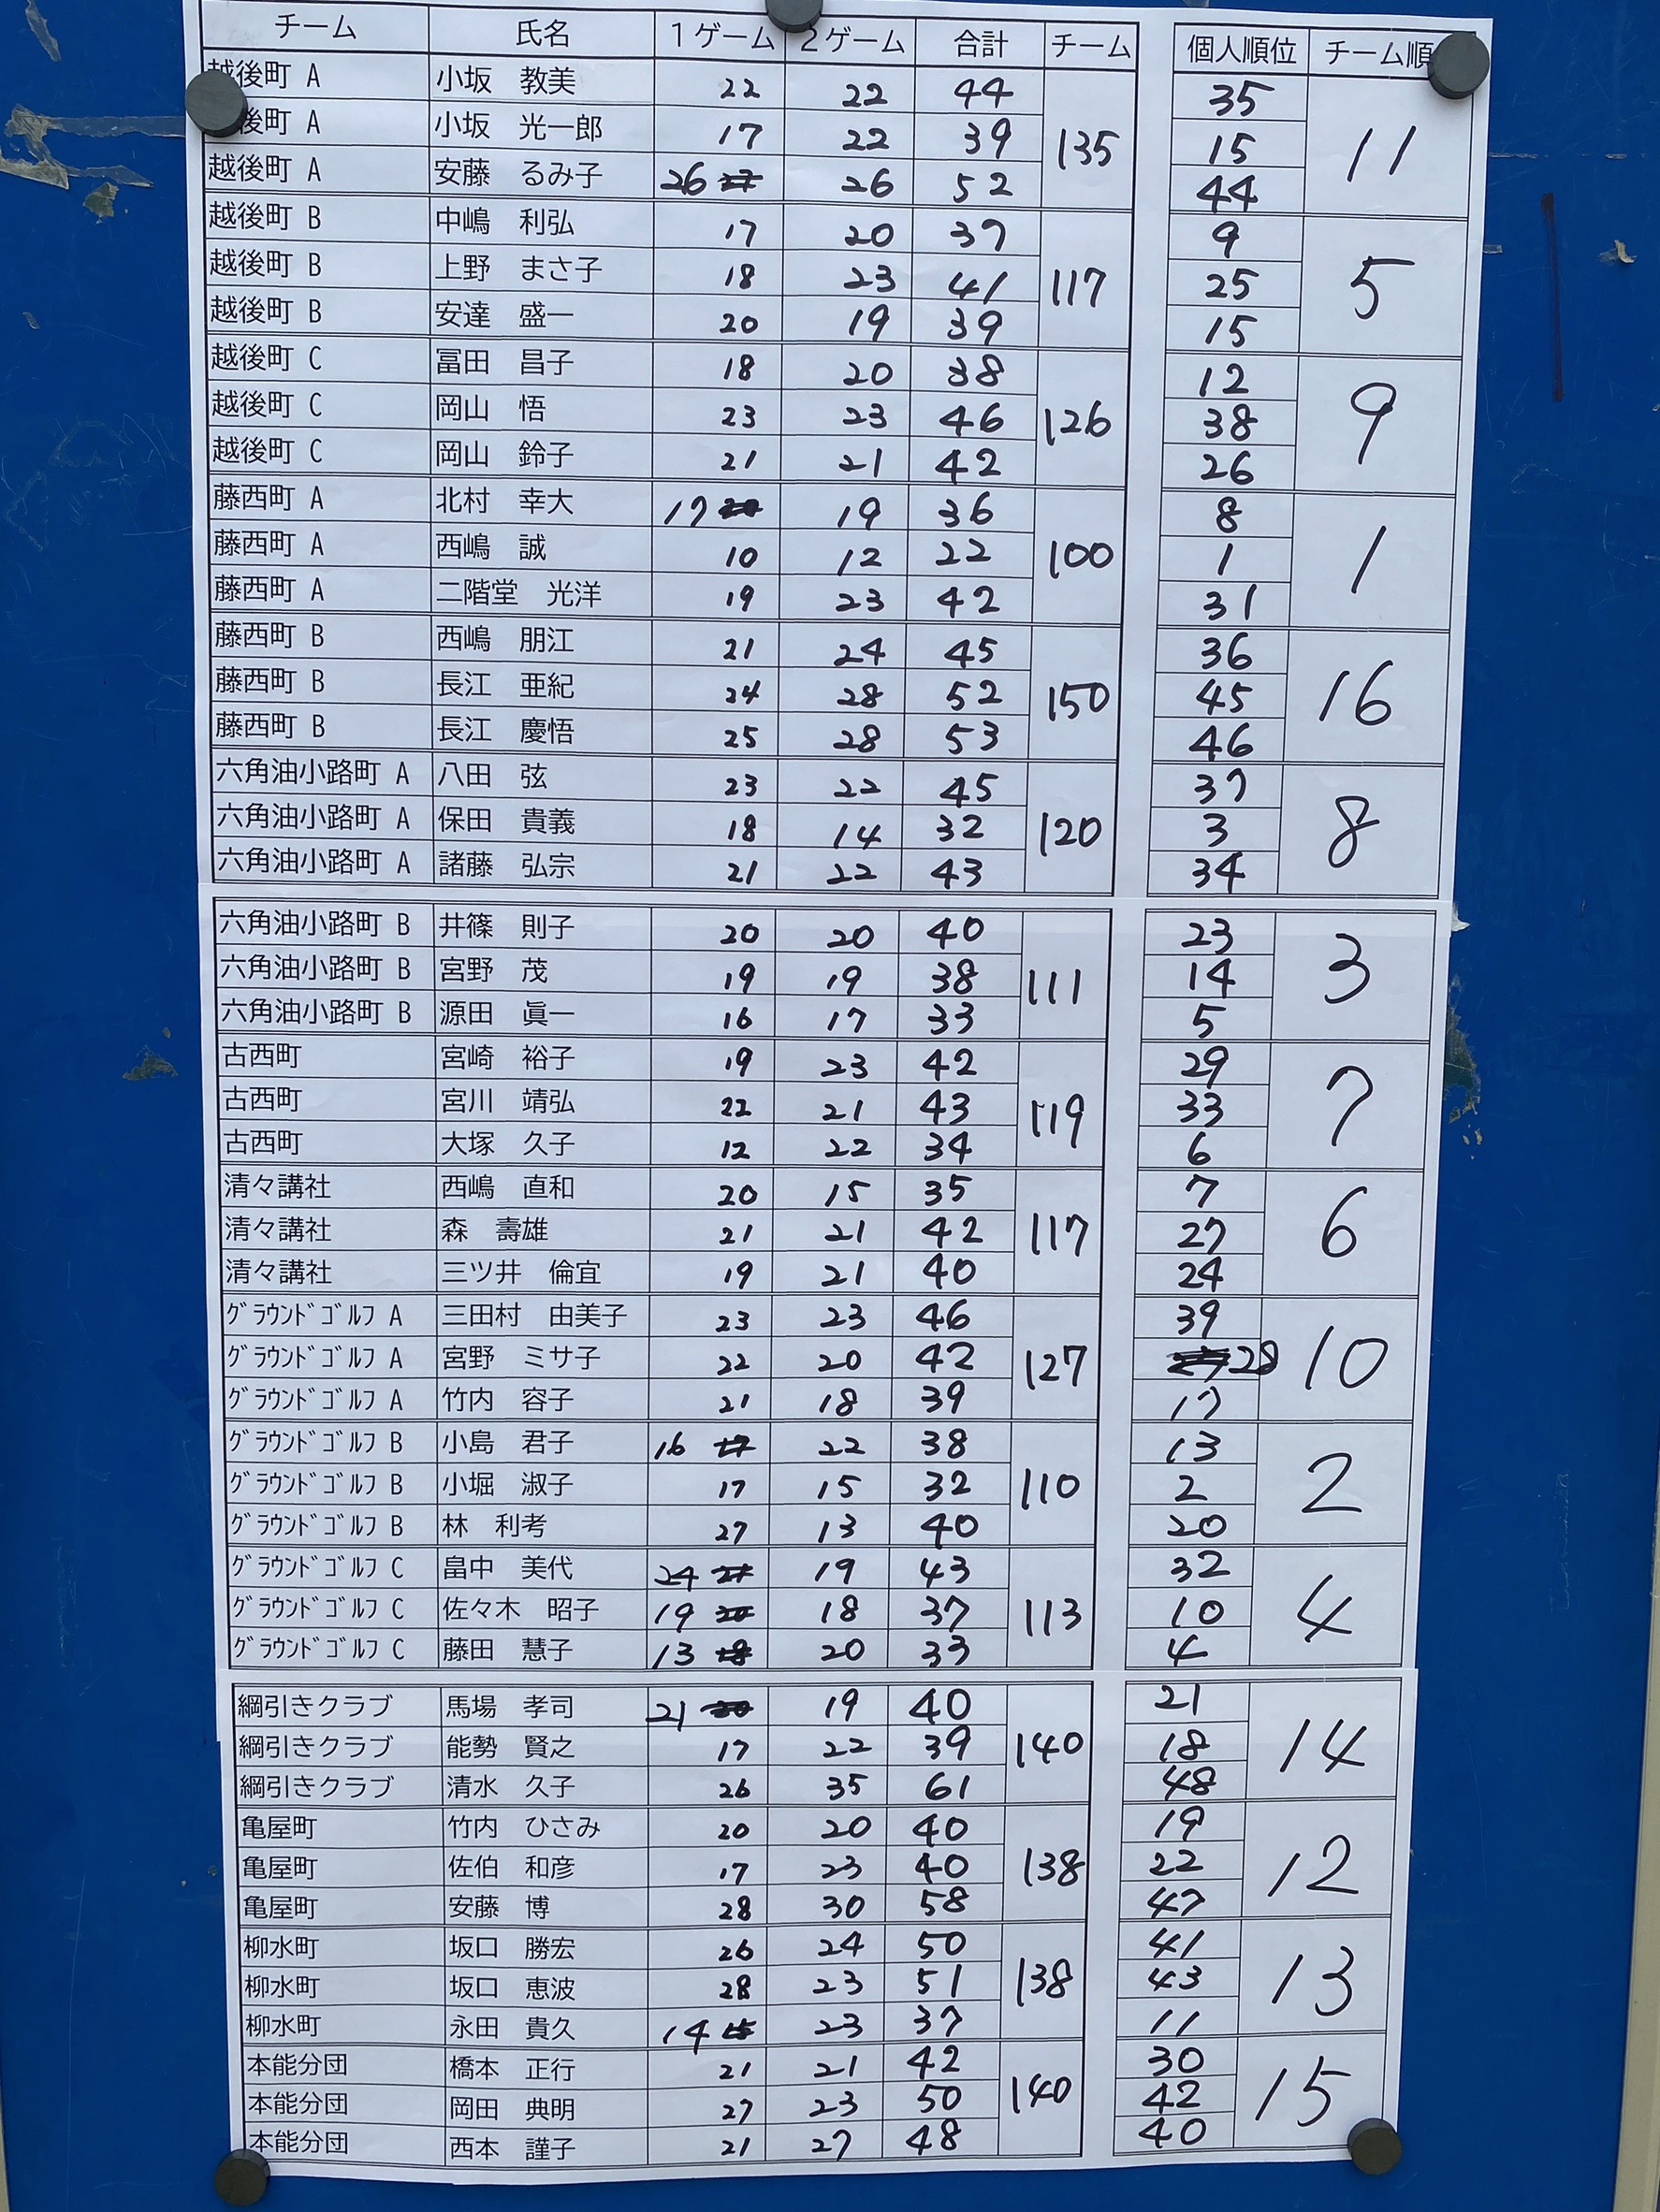 チーム 氏名 1ゲーム 2ゲーム 合計 チーム 個人順位 チーム順
越後町 A 小坂 教美 22 22 44 135 35 11
後町 A 小坂 光一郎 17 22 39 15
越後町 A 安藤 るみ子 26 26 52 44
越後町 B 中嶋 利弘 17 20 37 117 9 5
越後町 B 上野 まさ子 18 23 41 25
越後町 B 安達 盛一 20 19 39 15
越後町 C 冨田 昌子 18 20 38 126 12 9
越後町 C 岡山 悟 23 23 46 38
越後町 C 岡山 鈴子 21 21 42 26
藤西町 A 北村 幸大 17 19 36 100 8 1
藤西町 A 西嶋 誠 10 12 22 1
藤西町 A 二階堂 光洋 19 23 42 31
藤西町 B 西嶋 朋江 21 24 45 150 36 16
藤西町 B 長江 亜紀 24 28 52 45
藤西町 B 長江 慶悟 25 28 53 46
六角油小路町 A 八田 弦 23 22 45 120 37 8
六角油小路町 A 保田 貴義 18 14 32 3
六角油小路町 A 諸藤 弘宗 21 22 43 34
六角油小路町 B 井篠 則子 20 20 40 111 23 3
六角油小路町 B 宮野 茂 19 19 38 14
六角油小路町 B 源田 眞一 16 17 33 5
古西町 宮崎 裕子 19 23 42 119 29 7
古西町 宮川 靖弘 22 21 43 33
古西町 大塚 久子 12 22 34 6
清々講社 西嶋 直和 20 15 35 117 7 6
清々講社 森 壽雄 21 21 42 27
清々講社 三ツ井 倫宜 19 21 40 24
グラウンドゴルフ A 三田村 由美子 23 23 46 127 39 10
グラウンドゴルフ A 宮野 ミサ子 22 20 42 28
グラウンドゴルフ A 竹内 容子 21 18 39 17
グラウンドゴルフ B 小島 君子 16 22 38 110 13 2
グラウンドゴルフ B 小堀 淑子 17 15 32 2
グラウンドゴルフ B 林 利考 27 13 40 20
グラウンドゴルフ C 畠中 美代 24 19 43 113 32 4
グラウンドゴルフ C 佐々木 昭子 19 18 37 10
グラウンドゴルフ C 藤田 慧子 13 20 33 4
綱引きクラブ 馬場 孝司 21 19 40 140 21 14
綱引きクラブ 能勢 賢之 17 22 39 18
綱引きクラブ 清水 久子 26 35 61 48
亀屋町 竹内 ひさみ 20 20 40 138 19 12
亀屋町 佐伯 和彦 17 23 40 22
亀屋町 安藤 博 28 30 58 47
柳水町 坂口 勝宏 26 24 50 138 41 13
柳水町 坂口 恵波 28 23 51 43
柳水町 永田 貴久 14 23 37 11
本能分団 橋本 正行 21 21 42 140 30 15
本能分団 岡田 典明 27 23 50 42
本能分団 西本 謹子 21 27 48 40